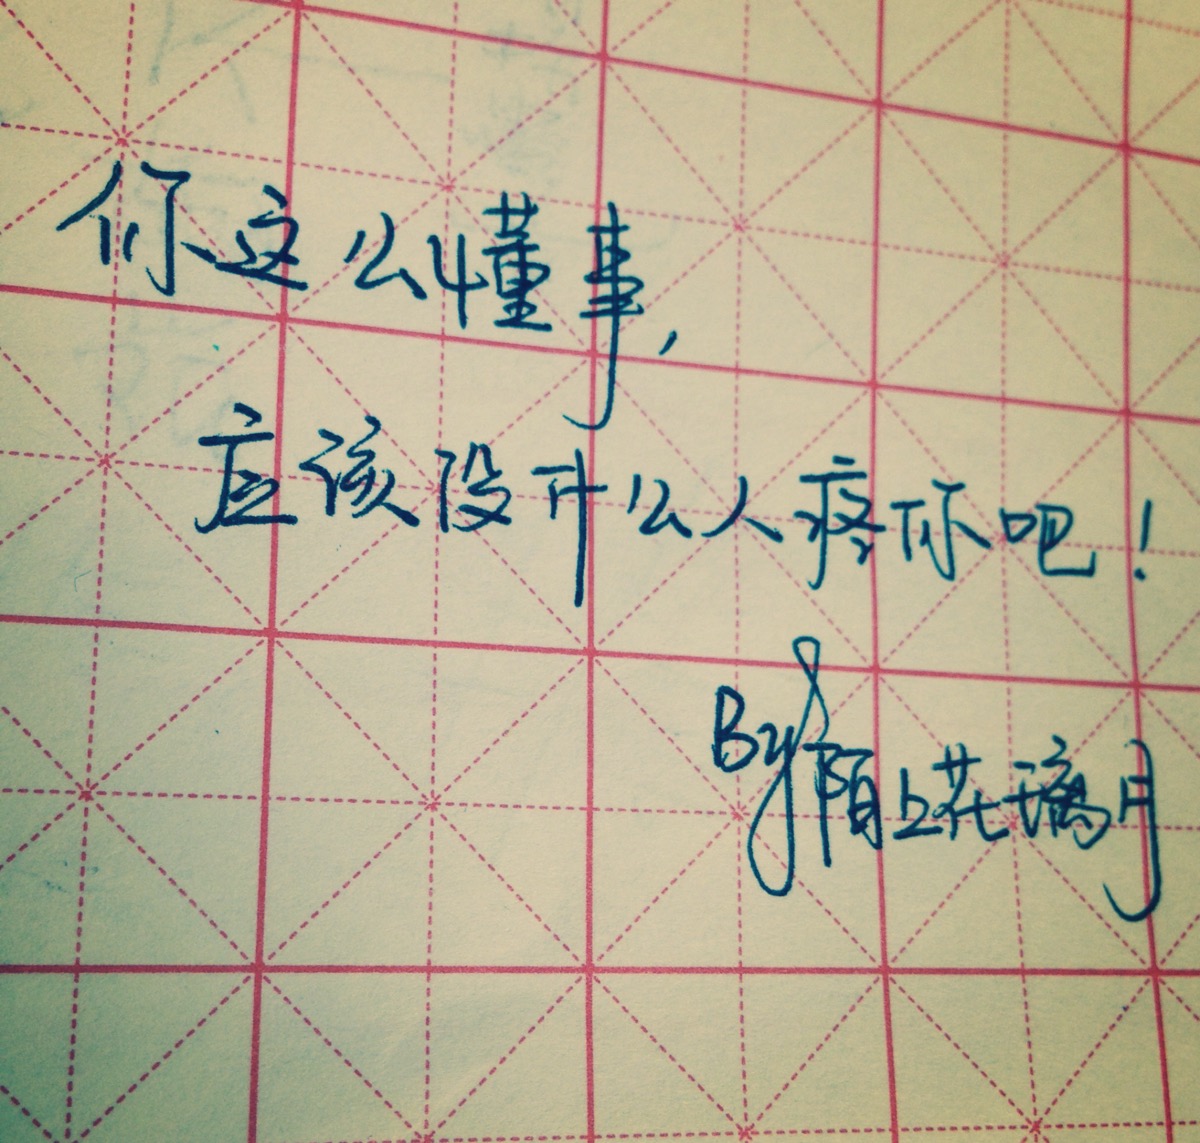 你这么懂事,
应该没什么人疼你吧!
By陌上花璃月